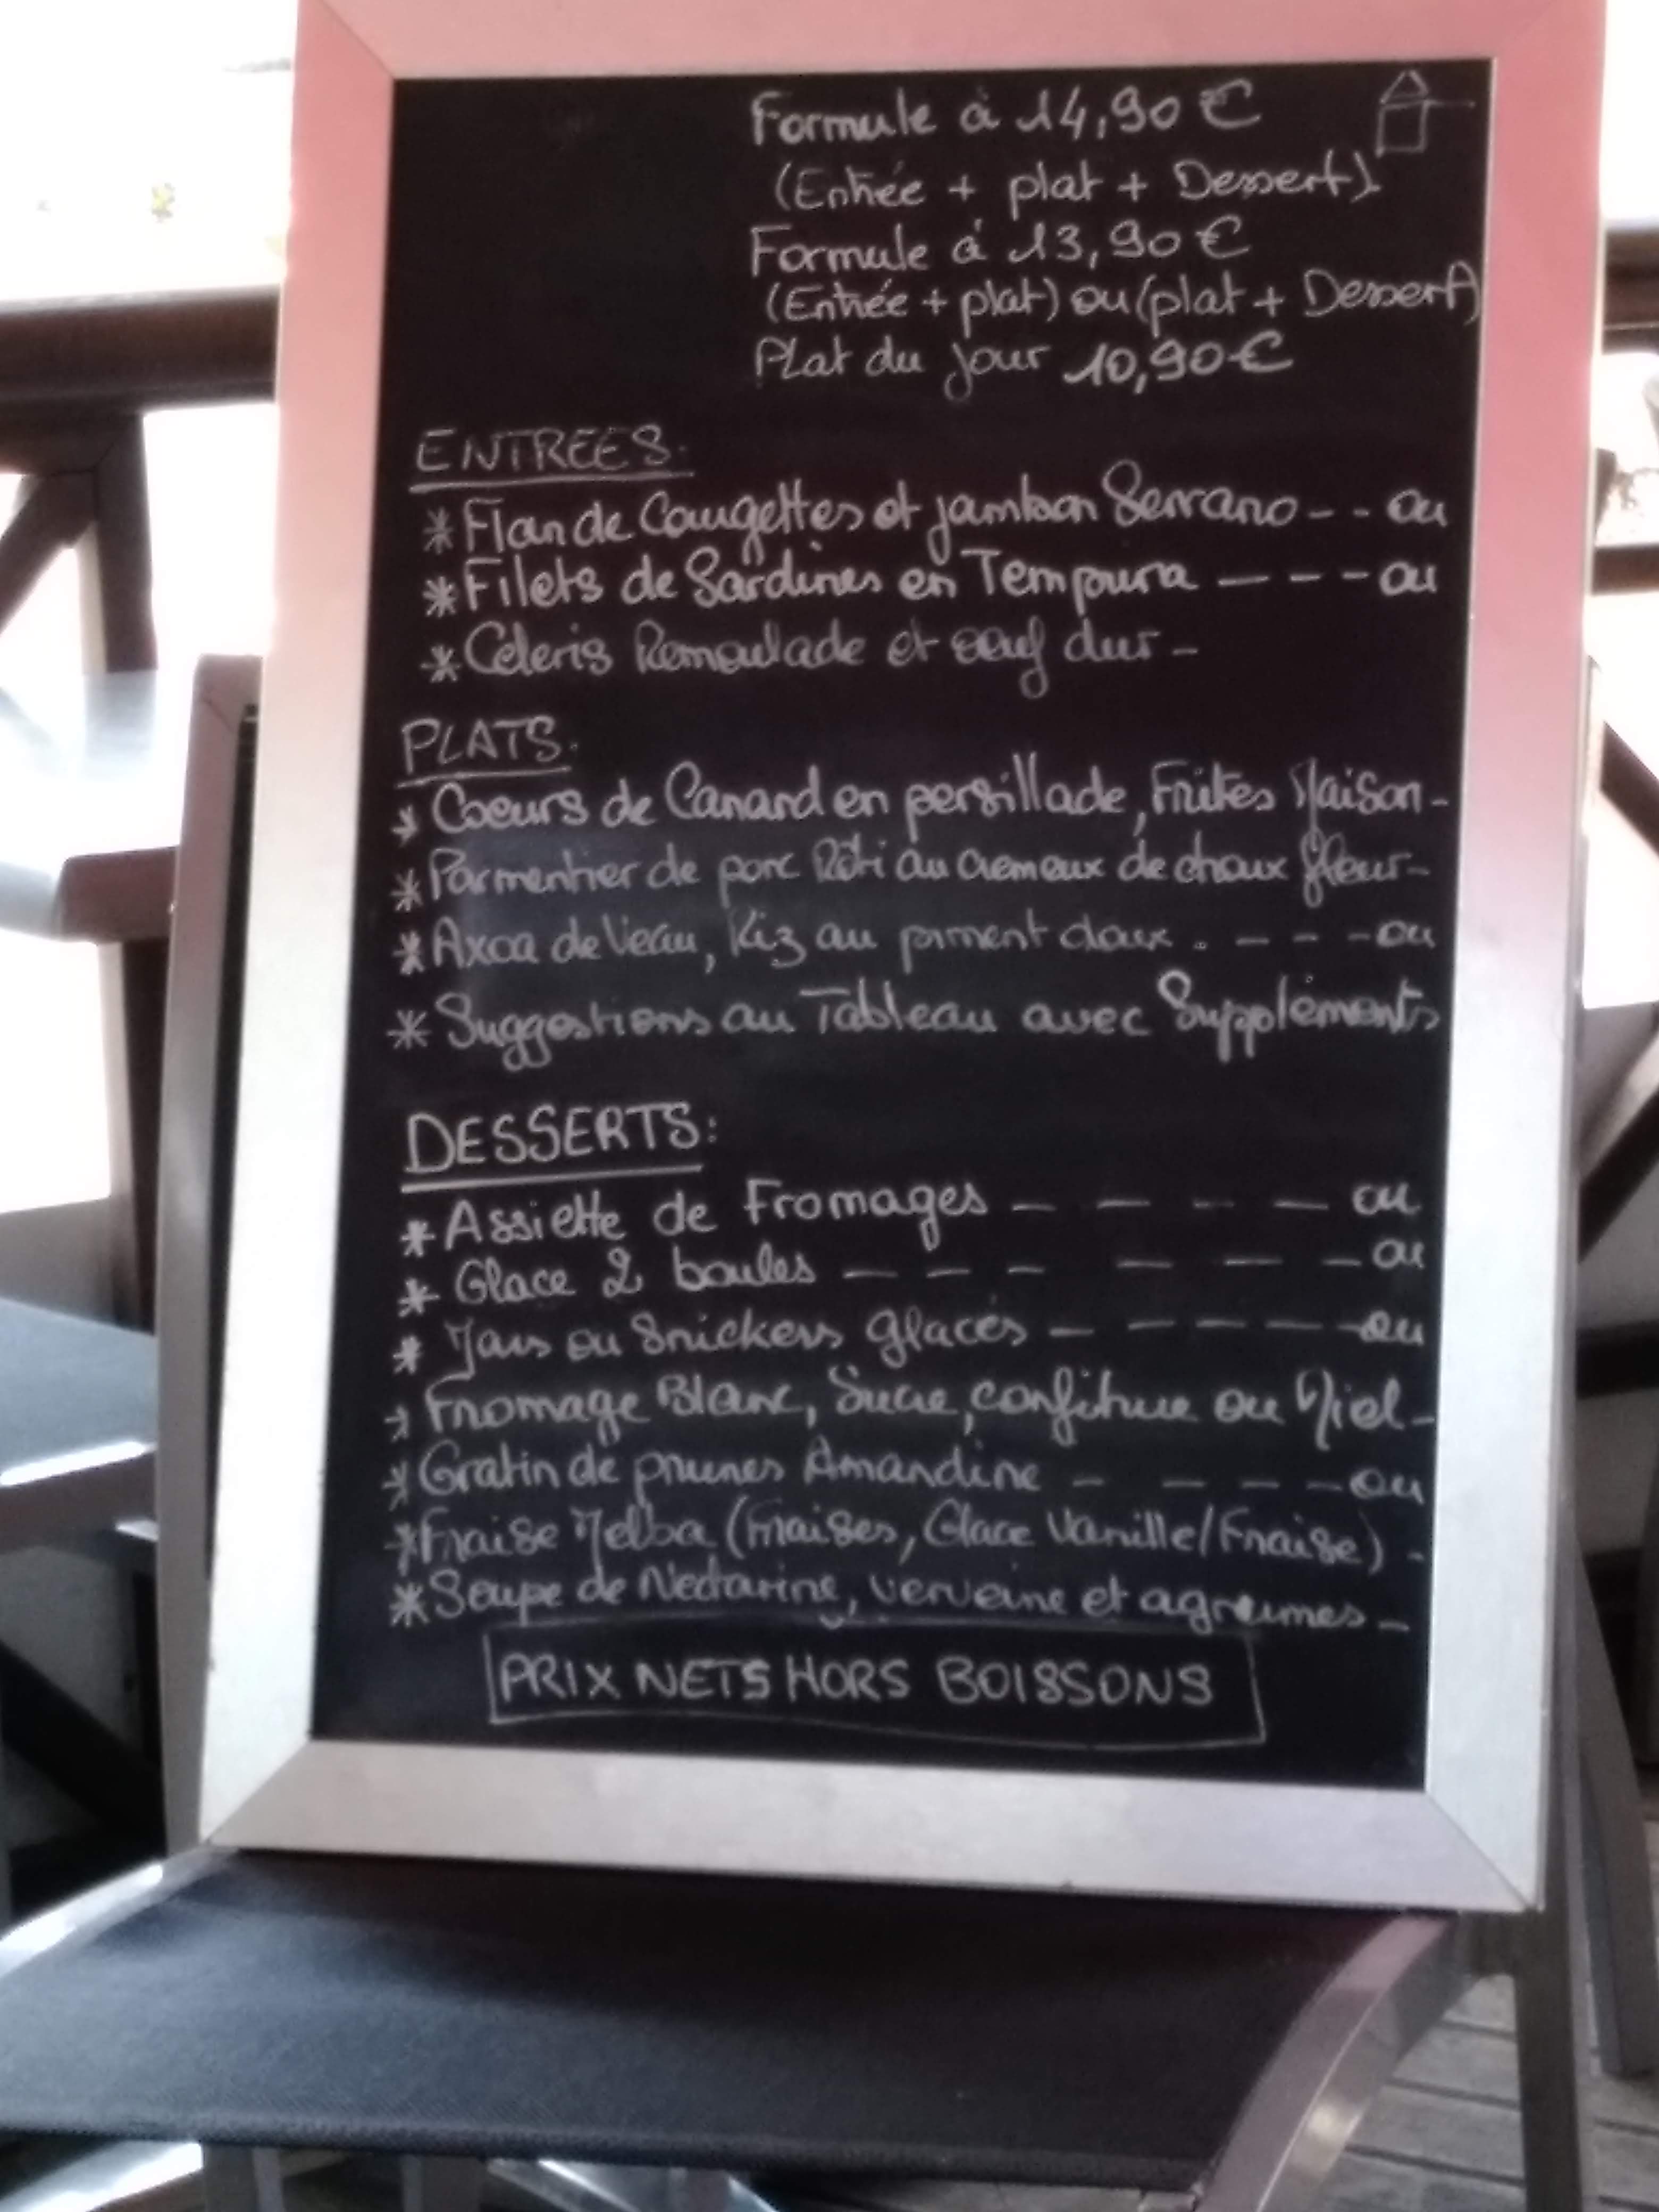 Formule à 14,90 €
(Entrée + plat + Dessert)
Formule à 13,90 €
(Entrée + plat) ou (plat + Dessert)
Plat du jour 10,90 €
ENTREES.
* Flan de Courgettes et jambon Serrano - - ou
* Filets de Sardines en Tempura - - - ou
* Céleris Remoulade et oeuf dur -
PLATS.
* Coeurs de Canard en persillade, Frites Maison -
* Parmentier de porc Rôti au cremeux de choux fleur -
* Axoa de Veau, Riz au piment doux . - - - ou
* Suggestions au Tableau avec Suppléments
DESSERTS:
* Assiette de Fromages - - - - ou
* Glace 2 boules - - - - - - ou
* Mars ou Snickers glacés - - - - - ou
* Fromage Blanc, Sucre, confiture ou Miel -
* Gratin de prunes Amandine - - - - ou
* Fraise Melba (Fraises, Glace Vanille/Fraise) -
* Soupe de Nectarine, verveine et agrumes -
PRIX NETS HORS BOISSONS